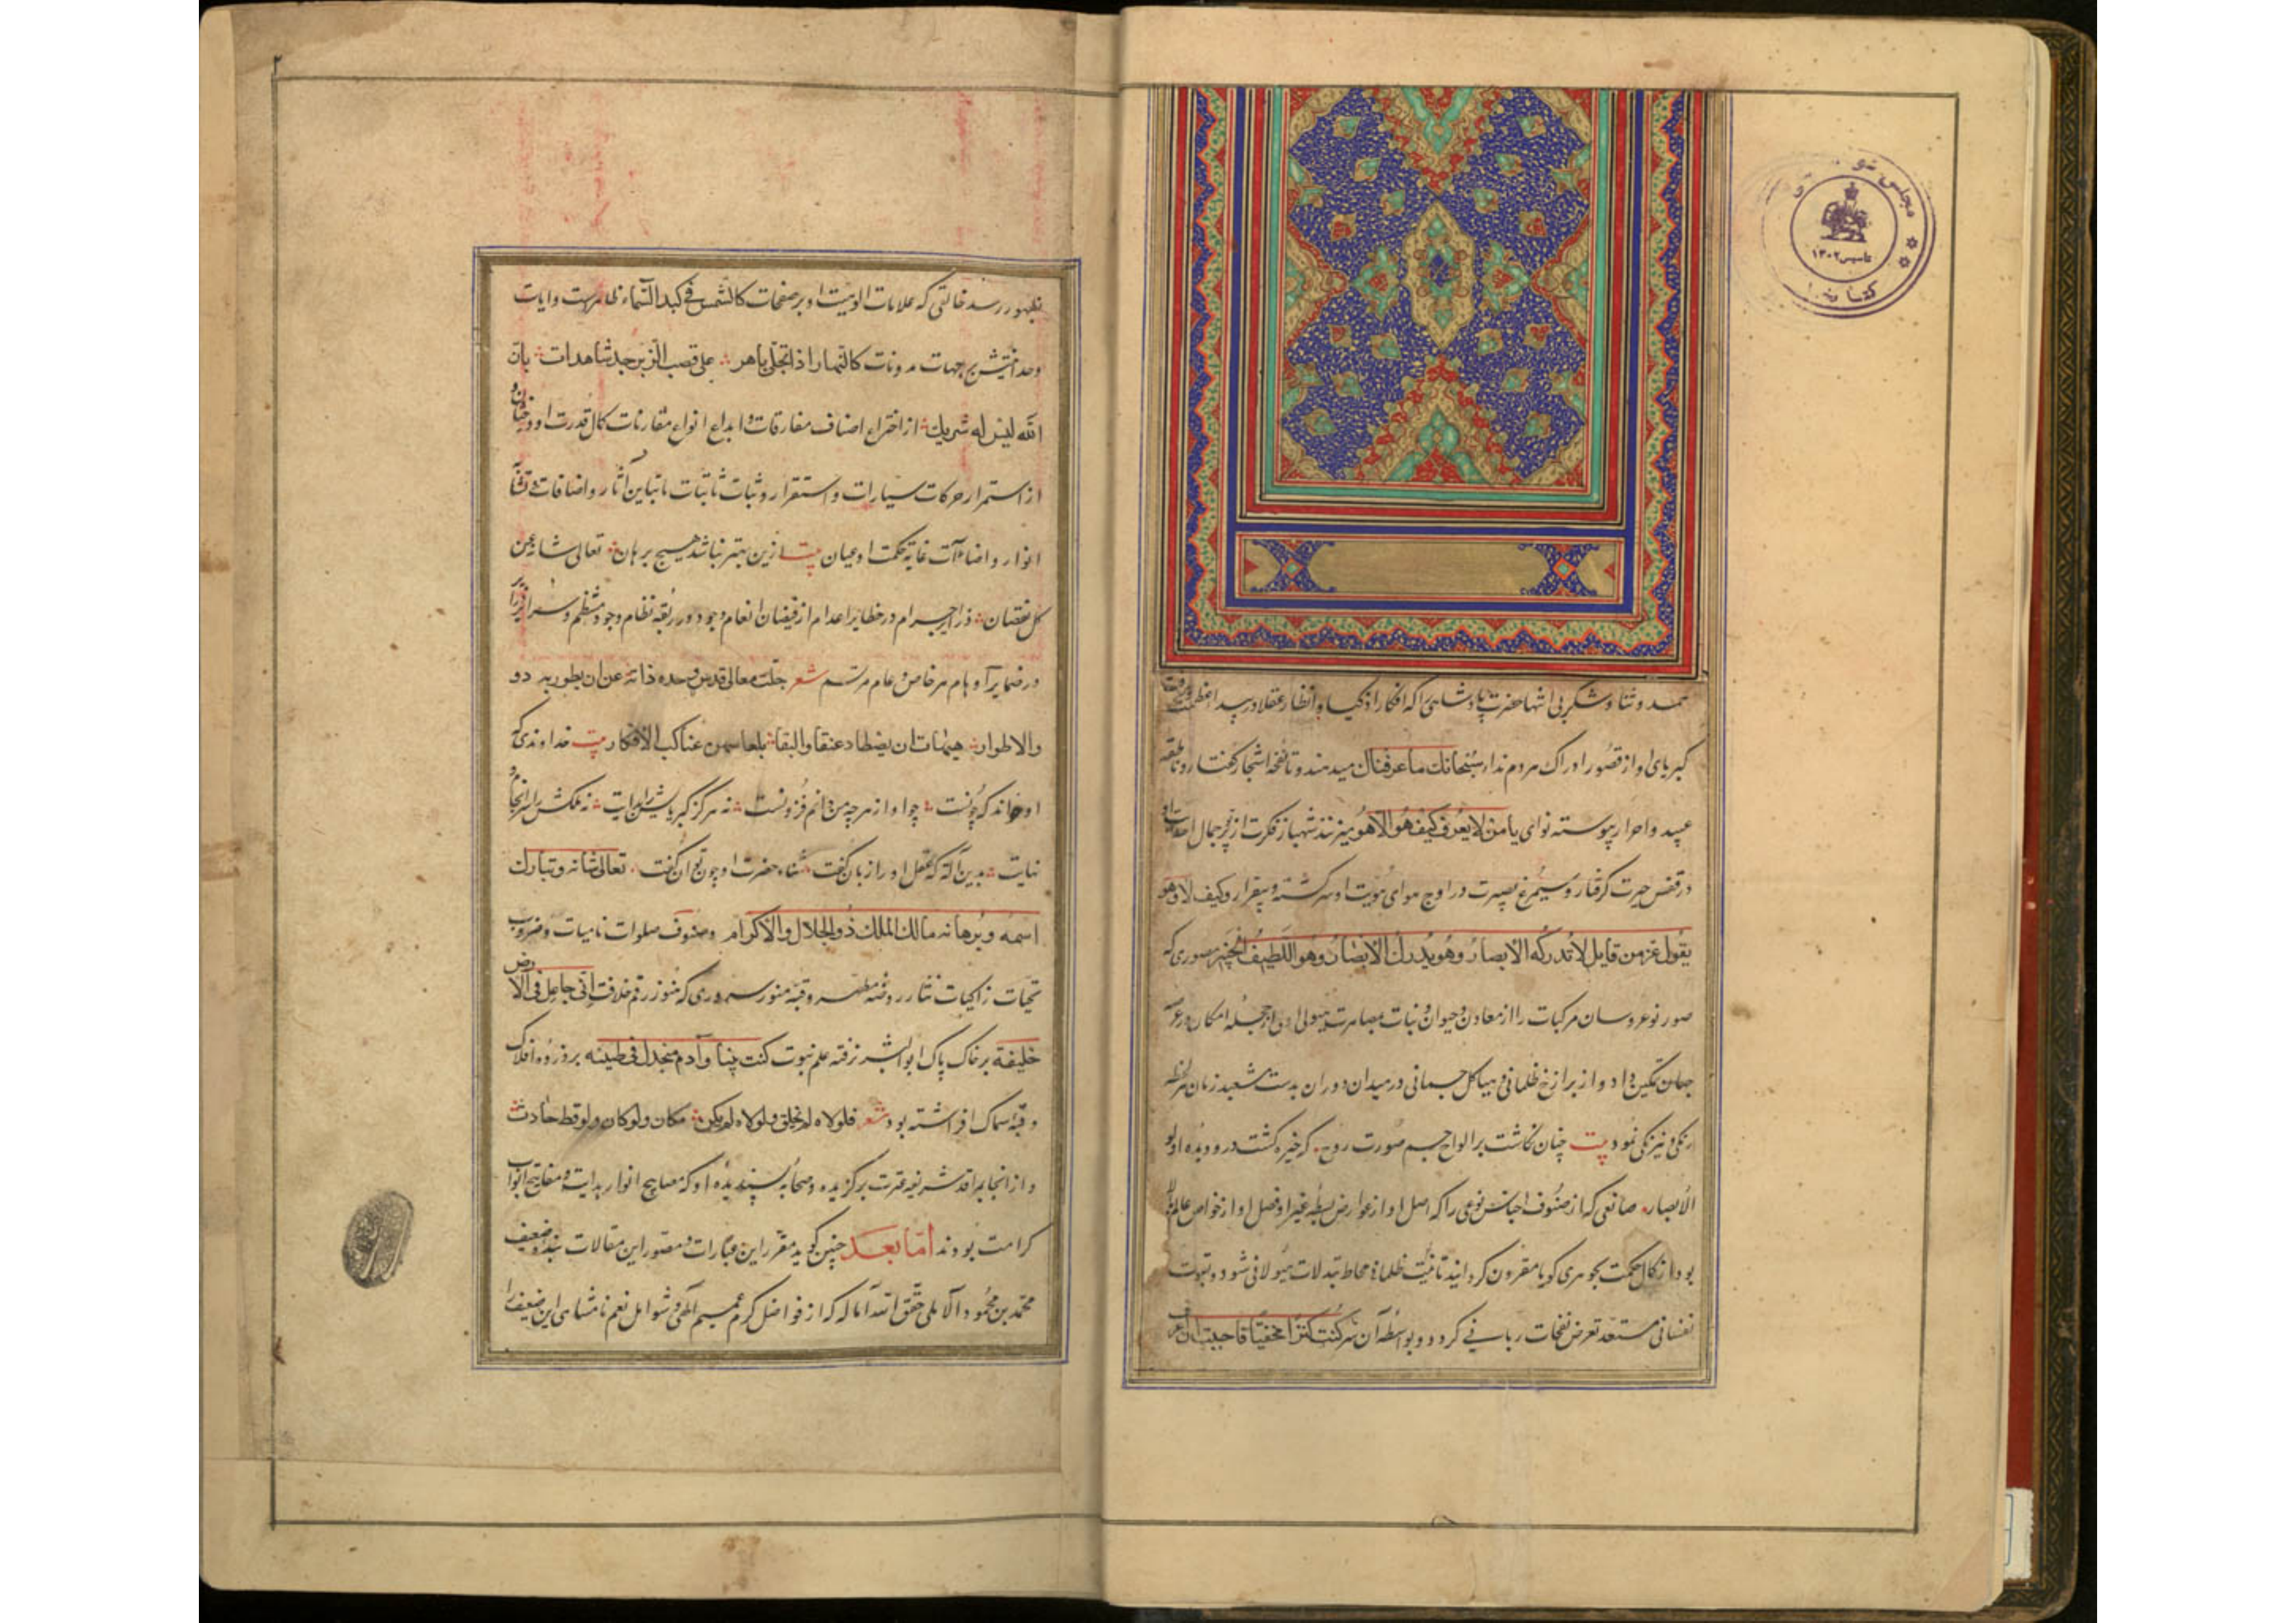 حمد و ثنا و شکر بی انتها حضرت پادشاهی را که افکار اذکیا و انظار عقلا در بیدا عظمت و
کبریای او از قصور ادراک مردم ندا سبحانك ما عرفناك میدهند و تا نفخه اشجار گفتار و ناطقه
عبید و احرار پیوسته نوای یا من لا یعرف کیف هو الا هو میزنند شهباز فکرت از فر جمال
در قفس حیرت گرفتار و سیمرغ بصیرت در اوج هوای هویت او سرگشته و بیقرار و کیف لا و هو
یقول عز من قایل لا تدركه الابصار و هو یدرك الابصار و هو اللطیف الخبیر مصوری که
صور نوعروسان مرکبات را از معادن و حیوان و نبات هیولی امکان در
جهان تمکین داد و از برازخ ظلمانی و هیاکل جسمانی در میدان دوران بدست مشعبد زمان هر لحظه
رنگی و نیرنگی نمود بیت چنان نگاشت بر الواح جسم صورت روح که خیره گشت درو دیده اولو
الابصار صانعی که از صنوف اجناس نوعی را که اصل او از عوارض بسیطه غیر او فصل او از خواص عالم
بود از کمال حکمت بجوهری گویا مقرون گردانید تا محاط تبدلات هیولانی شود و بقوت
نفسانی مستعد تعرض نفحات ربانی گردد و بواسطه آن سر کنت کنزا مخفیا فاحببت ان اعرف
بظهور رسد خالقی که علامات الوهیت او بر صفحات کالشمس فی کبد السماء ظاهرست و ایات
وحدانیتش بر جهات مدونات کالنهار اذا تجلی باهر علی قصب الزبرجد شاهدات بان
الله لیس له شریك از اختراع اصناف مفارقات و ابداع انواع مقارنات کمال قدرت او درخشان و
از استمرار حرکات سیارات و استقرار و ثبات ثابتات با تباین آثار و اضافات
انوار و اضاءات غایة حکمت او عیان بیت ازین بهتر نباشد هیچ برهان تعالی شانه عن
كل نقصان ذرایر اجرام در حظایر اعدام از فیضان انعام وجود در ربقه نظام وجود منتظم و سرایر
در ضمایر اوهام هر خاص و عام مرتسم شعر جلت معالی قدس وحده ذاته عن ان یطور به ذو
والاطوار هیهات ان یصطاد عنقاء البقا بلعابهن عناکب الافکار بیت خداوندی که
او داند که چونست چو او از هر چه من دانم فزونست نه هرگز کبریایش را بدایت نه ملکش را سرانجام و
نهایت بدین آلت که عقل او را زبان گفت ثناء حضرت او چون توان گفت تعالی شانه و تبارك
اسمه و برهانه مالك الملك ذو الجلال والاکرام و صنوف صلوات نامیات و ضروب
تحیات زاکیات نثار روضه مطهر و قبه منور سروری که هنوز رقم خلافت انی جاعل فی الارض
خلیفة بر خاک پاک ابو البشر نزفته علم نبوت کنت نبیا و آدم منجدل فی طینته بر ذروه افلاک
و قبه سماک افراشته بود شعر فلولاه لم نخلق و لولاه لم یکن مکان و لو کان و لو قط حادث
و از انجا بر عترت برگزیده و صحابه پسندیده او که مصابیح انوار هدایت و مفاتیح ابواب
کرامت بودند اما بعد چنین گوید مقرر این عبارات و مصور این مقالات بنده ضعیف
محمد بن محمود الآملی حقق الله آماله که از فواضل کرم عمیم الهی و شوامل نعم نامتناهی این ضعیف را
مجلس
تاسیس ۱۳۰۲
۲